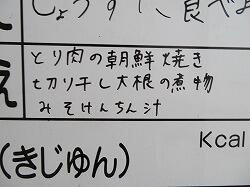 じょうずに食べよ
え
とり肉の朝鮮焼き
切り干し大根の煮物
みそけんちん汁
Kcal
(きじゅん)